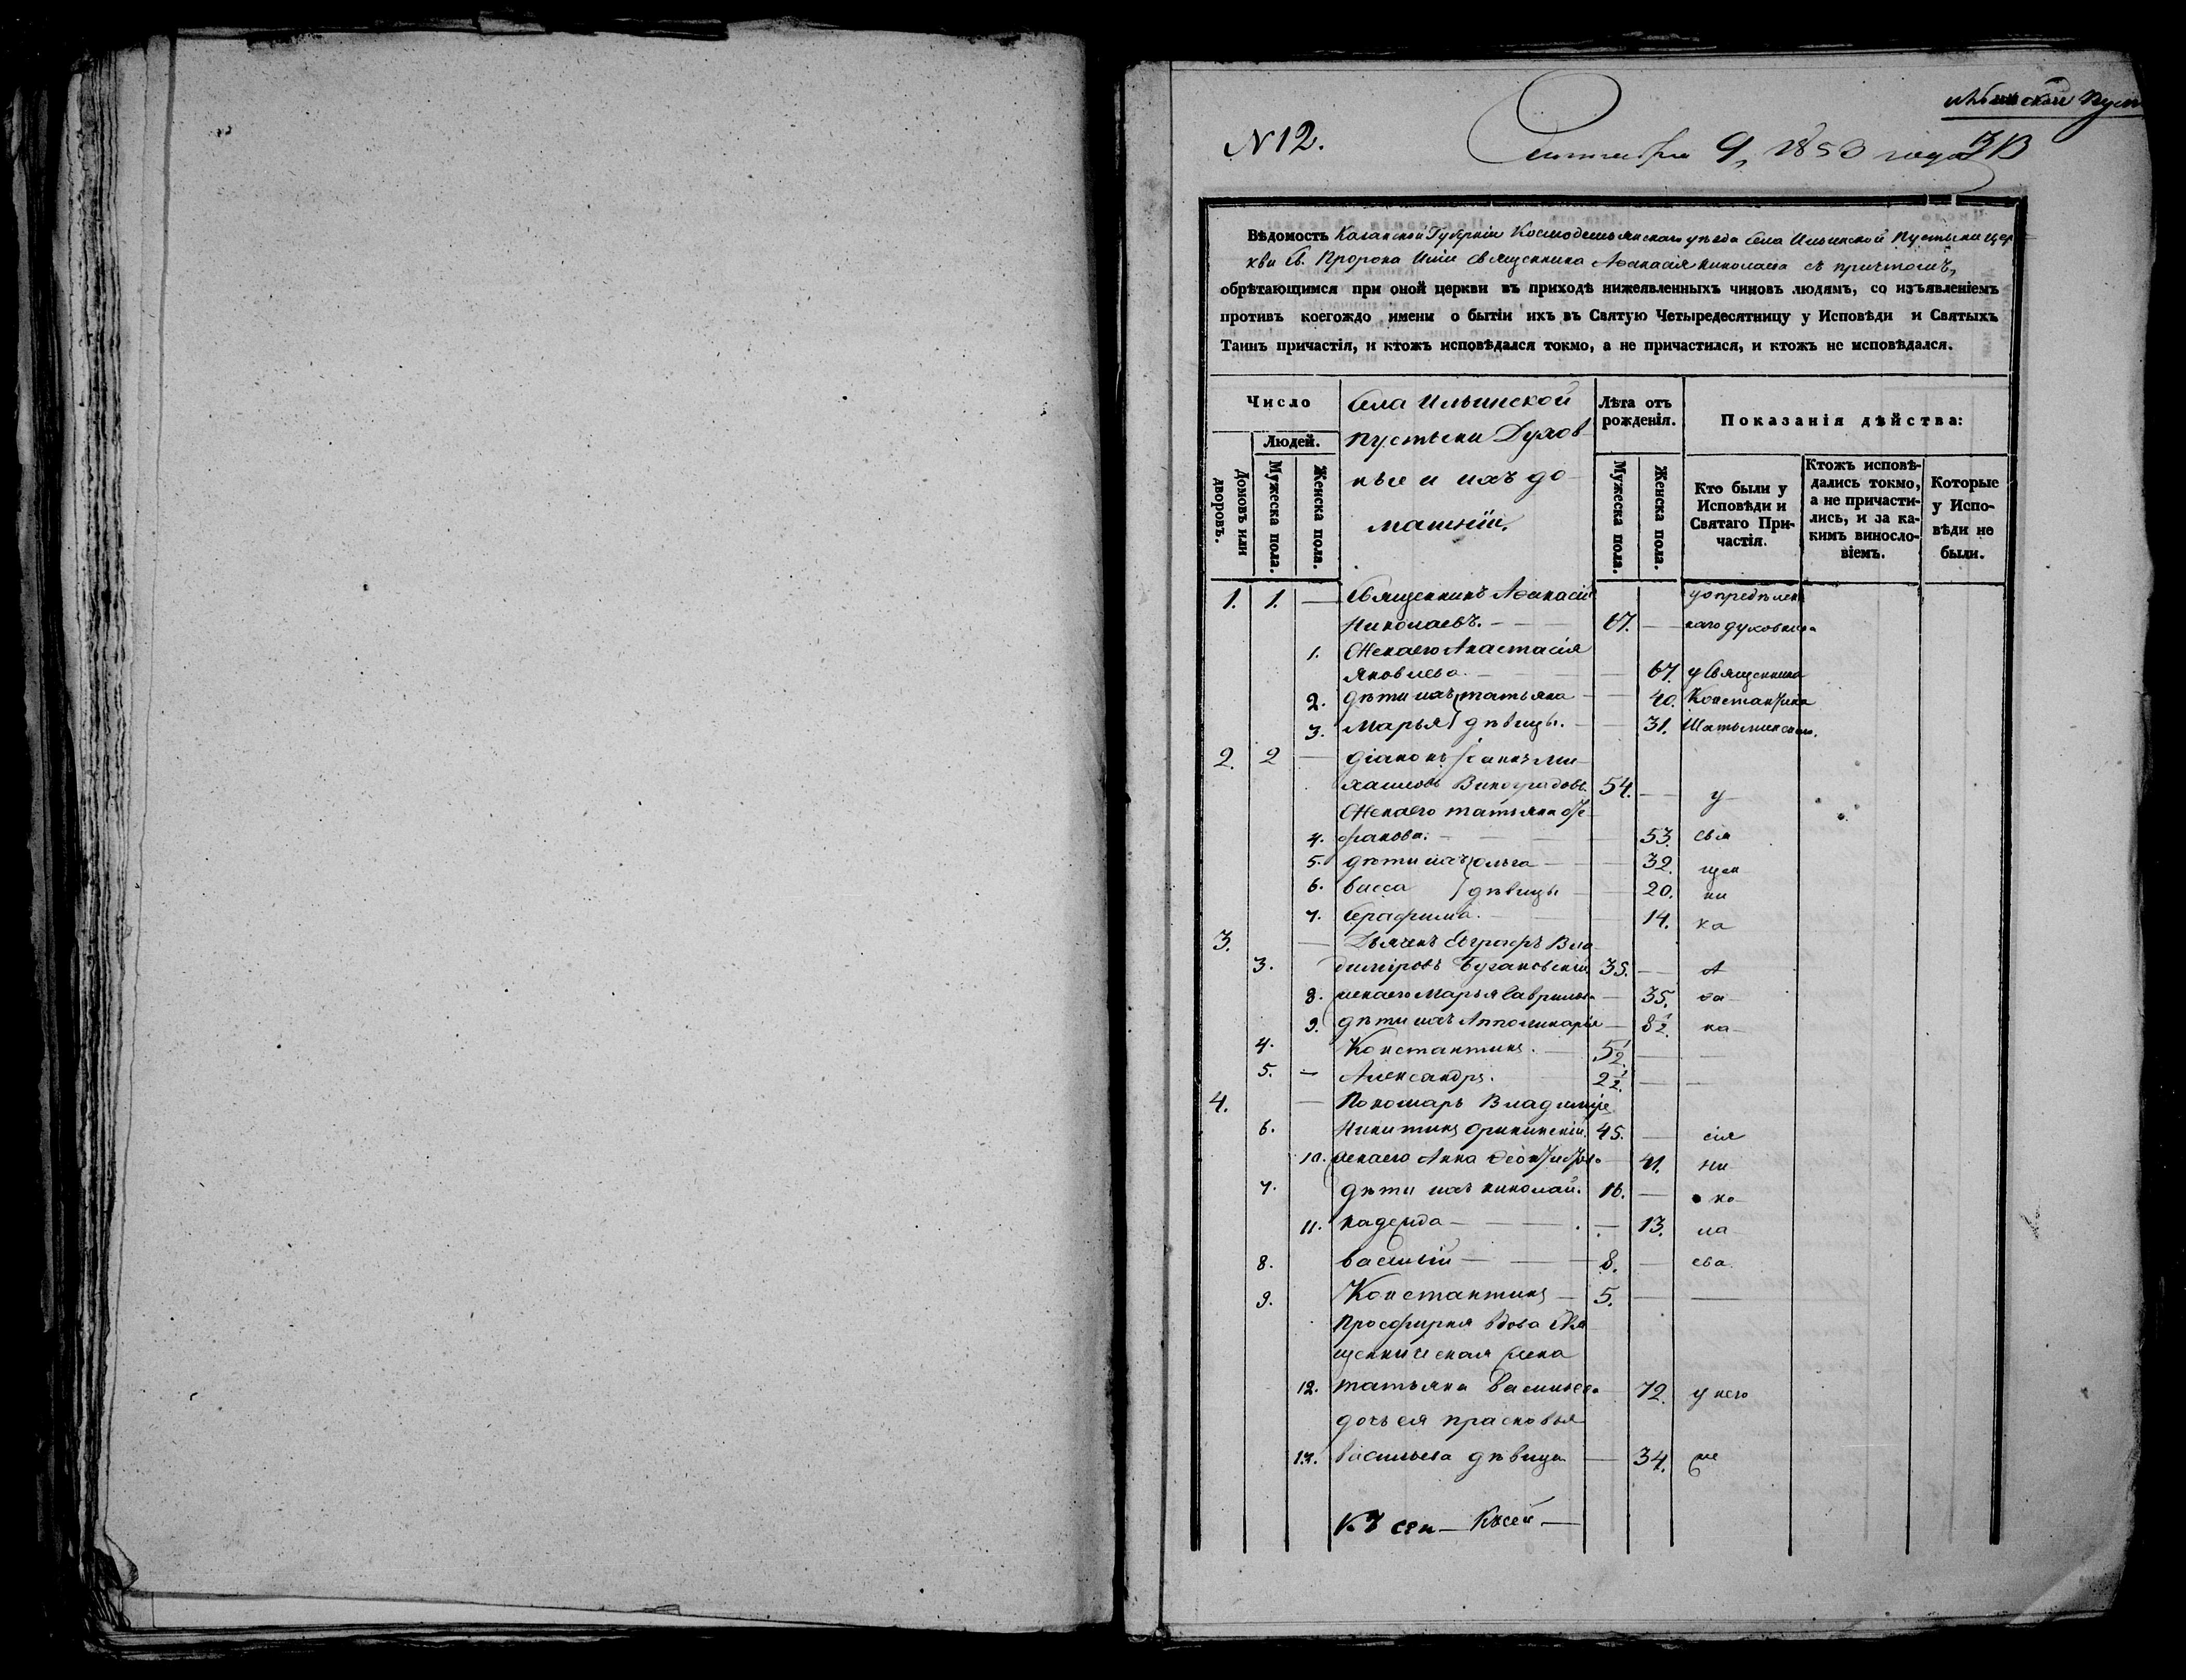 Ильинской Пуст
№ 12.
Сентября 9, 1853 года 313
Вѣдомость Казанской Губерніи Космодемьянскаго уѣзда Села Ильинской Пустыни цер
кви Св. Пророка Иліи священника Аѳанасія Николаева съ причтомъ,
обрѣтающимся при оной церкви въ приходѣ нижеявленныхъ чиновъ людямъ, со изъявленіемъ
противъ коегождо имени о бытіи ихъ въ Святую Четыредесятницу у Исповѣди и Святыхъ
Таинъ причастія, и ктожъ исповѣдался токмо, а не причастился, и ктожъ не исповѣдался.
Число
Домовъ или дворовъ.
Людей.
Мужеска пола.
Женска пола.
Села Ильинской
пустыни Духов
ные и ихъ до
машніи.
Лѣта отъ рожденія.
Мужеска пола.
Женска пола.
Показанія дѣйства:
Кто были у Исповѣди и Святаго Причастія.
Ктожъ исповѣдались токмо, а не причастились, и за какимъ винословіемъ.
Которые у Исповѣди не были.
1. 1. — Священникъ Аѳанасій у опредѣлен
Николаевъ. — 67. — наго духовника
1. Жена его Анастасія
Яковлева. — 67. у Священника
2. дѣти ихъ татьяна — 40. Константина
3. Марья дѣвицы. — 31.
2. 2 — діаконъ Іоаннъ Ми
хайловъ Виноградовъ. 54. — у
Жена его татьяна
4. — 53. свя
5. дѣти ихъ ольга — 32. щен
6. васса дѣвицы — 20. ни
7. Серафима. — 14. ка
3. — Дьячекъ Евграфъ Вла
3. диміровъ 35. — А
8. жена его Марья Гаврилова — 35. ѳа
9. дѣти ихъ Апполинарія — 8½. на
4. Константинъ. — 5½. —
5. — Александръ. 2½. —
4. — Пономарь Владиміръ
6. Никитинъ 45. — сія
10. жена его Анна — 41. Ни
7. дѣти ихъ николай. 16. — ко
11. надежда — 13. ла
8. василій — 8. — ева
9. Константинъ — 5. —
Просфирня вдова Свя
щенническая жена
12. татьяна Васильева 72. у него
дочь ея прасковья
13. васильева дѣвица — 34. же